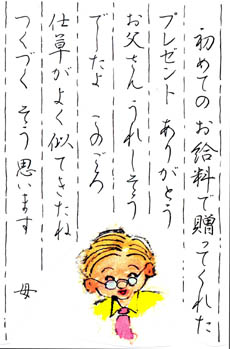 初めてのお給料で贈ってくれた
プレゼント ありがとう
お父さん うれしそう
でしたよ このごろ
仕草がよく似てきたね
つくづく そう思います
母